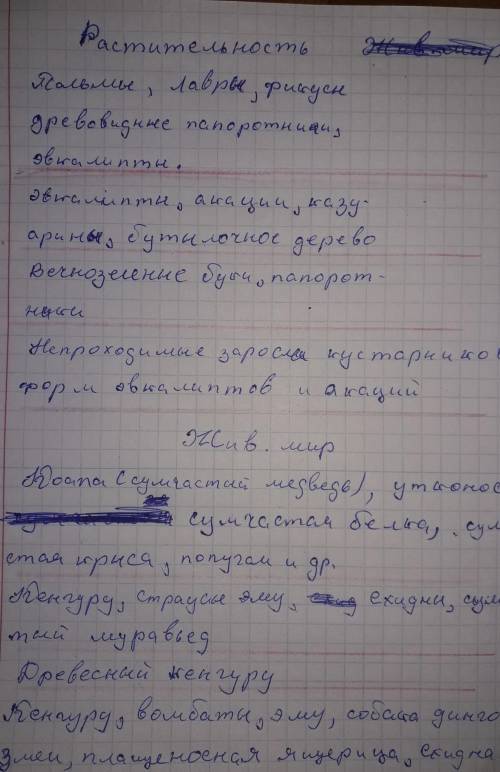 Растительность
Пальмы, лавры, фикусы
древовидные папоротники,
эвкалипты.
эвкалипты, акации, казу-
арины, бутылочное дерево
Вечнозеленые буки, папорот-
ники
Непроходимые заросли кустарников
форм эвкалиптов и акаций
Жив. мир
Коала (сумчастый медведь), утконос
сумчастая белка, сум
стая крыса, попугаи и др.
Кенгуру, страусы эму, ехидны, сум
тый муравьед
Древесный кенгуру
Кенгуру, вомбаты, эму, собака динго
змеи, плащеносная ящерица, ехидна